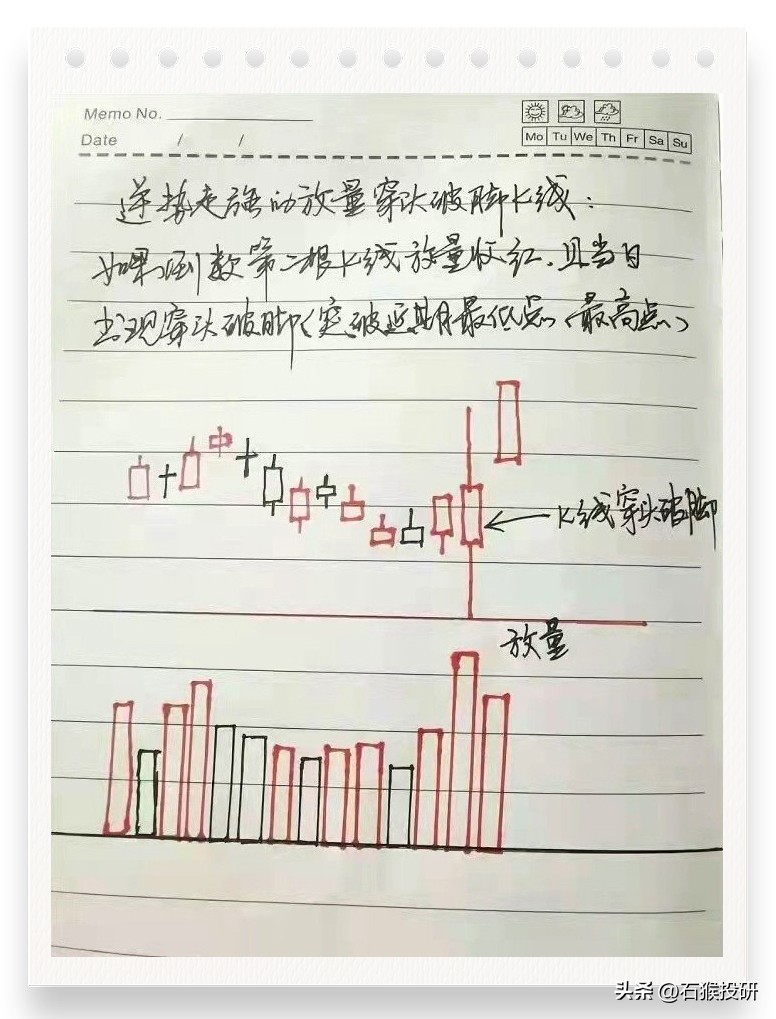 Memo No.
Date / /
Mo Tu We Th Fr Sa Su
逆势走强的放量穿头破脚K线:
如果倒数第二根K线放量收红.且当日
出现穿头破脚(突破近期最低点、最高点)
K线穿头破脚
放量
头条 @石猴投研